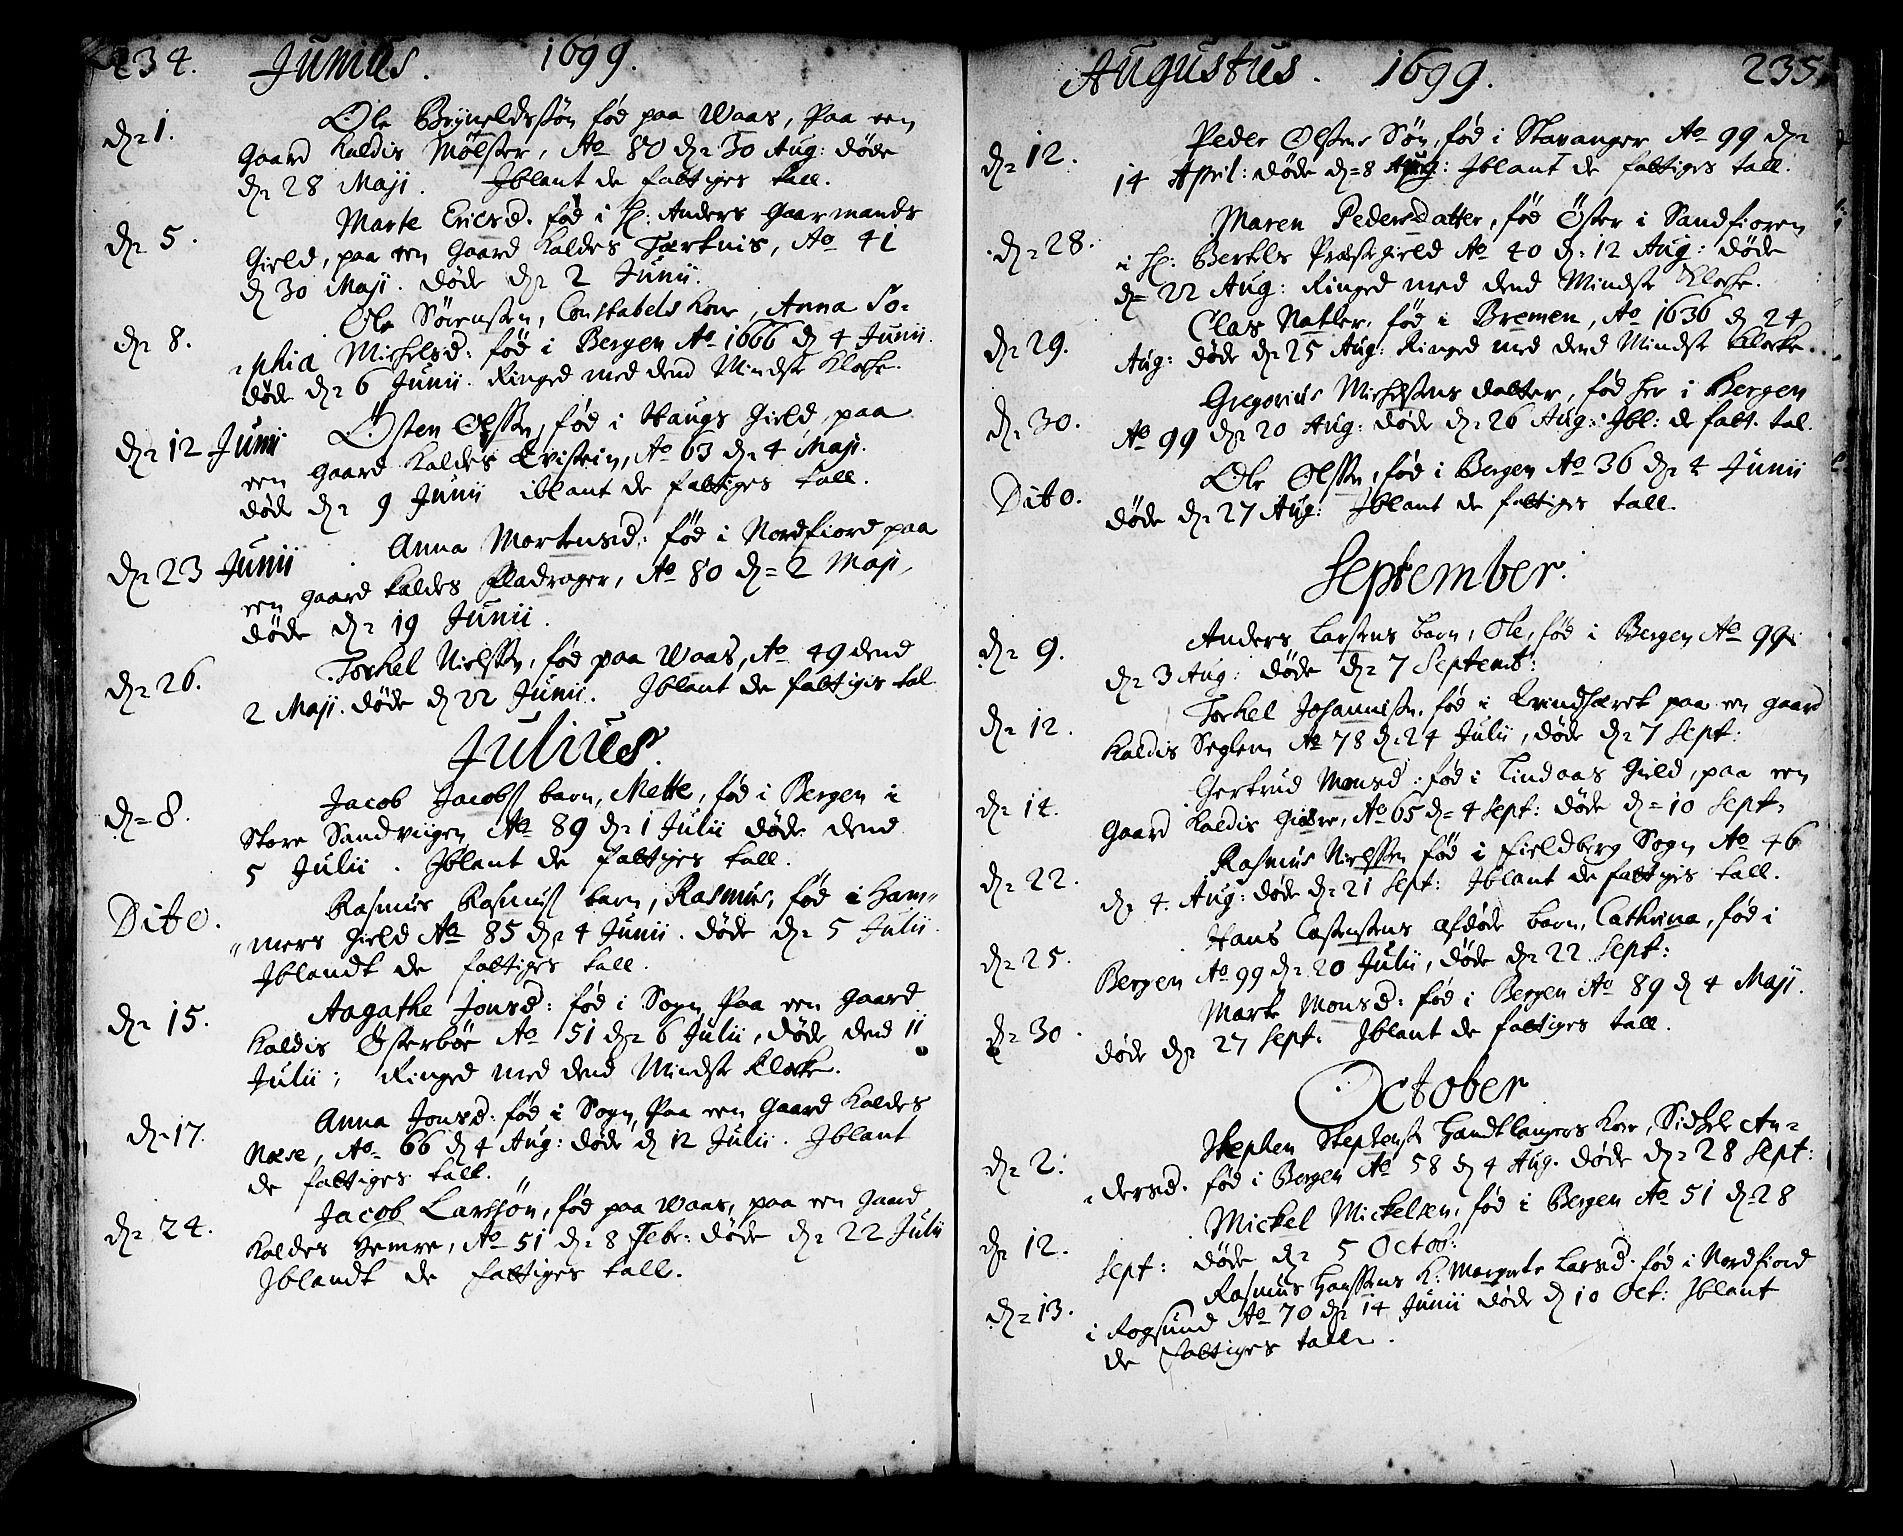 234. Junius. 1699.
dn 1. Ole Brÿneldssön fød paa Waas, Paa een
gaard kaldis Mölster, Ao 80 dn 30 Aug: døde
dn 28 Maji. Jblant de fattiges tall.
dn 5. Marte Ericsd. fød i H: Anders Gaarmands
Gield, paa een gaard kaldes Tærknis, Ao 41
d 30 Maji. døde dn 2 Junii.
dn 8. Ole Sörenssen, Constabels kone, Anna So-
phia Michelsd: fød i Bergen Ao 1666 d 4 Junii.
døde dn 6 Junii. Ringed med dend Mindste Klocke.
dn 12 Juni Östen Olssen, fød i Haugs Gield, paa
een gaard kaldes Evistein, Ao 63 dn 4 Maji.
døde dn 9 Junii iblant de fattiges tall.
dn 23 Junii Anna Mortensd: fød i Nordfiord paa
een gaard kaldes Fladrager, Ao 80 d= 2 Maji,
døde dn 19 Junii.
dn 26. Torkel Nielssen, fød paa Waas, Ao 49 dend
2 Maji. døde d 22 Junii. Jblant de fattigis tal.
Julius.
dn 8. Jacob Jacobs barn, Mette, fød i Bergen i
Store Sandviigen Ao 89 dn 1 Julii døde dend
5 Julii. Jblant de fattiges tall.
Dito. Rasmus Rasmus barn, Rasmus, fød i Ham-
mers gield Ao 85 dn 4 Junii. døde dn 5 Julii.
Jblandt de fattiges tall.
dn 15. Aagathe Jonsd: fød i Sogn Paa een gaard
kaldis Österböe Ao 51 dn 6 Julii, døde dend 11
Julii; Ringed med dend Mindste Klocke.
dn 17. Anna Jonsd. fød i Sogn, Paa een Gaard kaldes
Næse, Ao 66 d 4 Aug: døde d 12 Julii. Jblant
de fattiges tall.
dn 24. Jacob Larssön, fød paa Waas, paa een gaard
kaldes Hemre, Ao 51 dn 8 Febr: døde dn 22 Julii
Jblandt de fattiges tall.
Augustus. 1699. 235.
dn 12. Peder Olsens Sön, fød i Stavanger Ao 99 dn
14 April: døde d= 8 Aug: Jblant de fattiges tall.
dn 28. Maren Pedersdatter, fød Öster i Sandfioren
i H: Bertels Præstegield Ao 40 dn 12 Aug: døde
d= 22 Aug: Ringed med dend Mindste Klocke.
dn 29. Clas Natler, fød i Bremen, Ao 1636 d 24
Aug: døde dn 25 Aug: Ringed med dend Mindste Klocke.
dn 30. Gregorius Michelsens datter, fød her i Bergen
Ao 99 dn 20 Aug: døde dn 26 Aug: Jbl: de fatt. tal.
Dito. Ole Olssen, fød i Bergen Ao 36 dn 4 Junii
døde dn 27 Aug: Jblant de fattiges tall.
September.
dn 9. Anders Larsens barn, Ole, fød i Bergen Ao 99
dn 3 Aug: døde dn 7 Septemb:
dn 12. Torkel Johannessen, fød i Qvindhæret paa een gaard
kaldis Seglem Ao 78 dn 24 Julii, døde dn 7 Sept:
dn 14. Gertrud Monsd: fød i Lindaas Gield, paa een
Gaard kaldis Ao 65 d= 4 Sept: døde d= 10 Sept:
dn 22. Rasmus Nielssen fød i Fieldberg Sogn Ao 46
dn 4. Aug: døde dn 21 Sept: Jblant de fattigis tall.
dn 25. Hans Castensens afdøde barn, Cathrina, fød i
Bergen Ao 99 dn 20 Julii, døde dn 22 Sept:
dn 30. Marte Monsd: fød i Bergen Ao 89 d 4 Maji.
døde dn 27 Sept: Jblant de fattiges tall.
October
dn 2. Stephen Stephens Handtlangers kone, Sidsele An-
dersd. fød i Bergen Ao 58 d 4 Aug. døde dn 28 Sept:
dn 12. Mickel Mickelsen, fød i Bergen Ao 51 dn 28
Sept: døde dn 5 Octob:
dn 13. Rasmus Hanssens K: Margrete Larsd. fød i Nordfiord
i Rogsund Ao 70 dn 14 Junii døde d 10 Oct: Jblant
de fattiges tall.